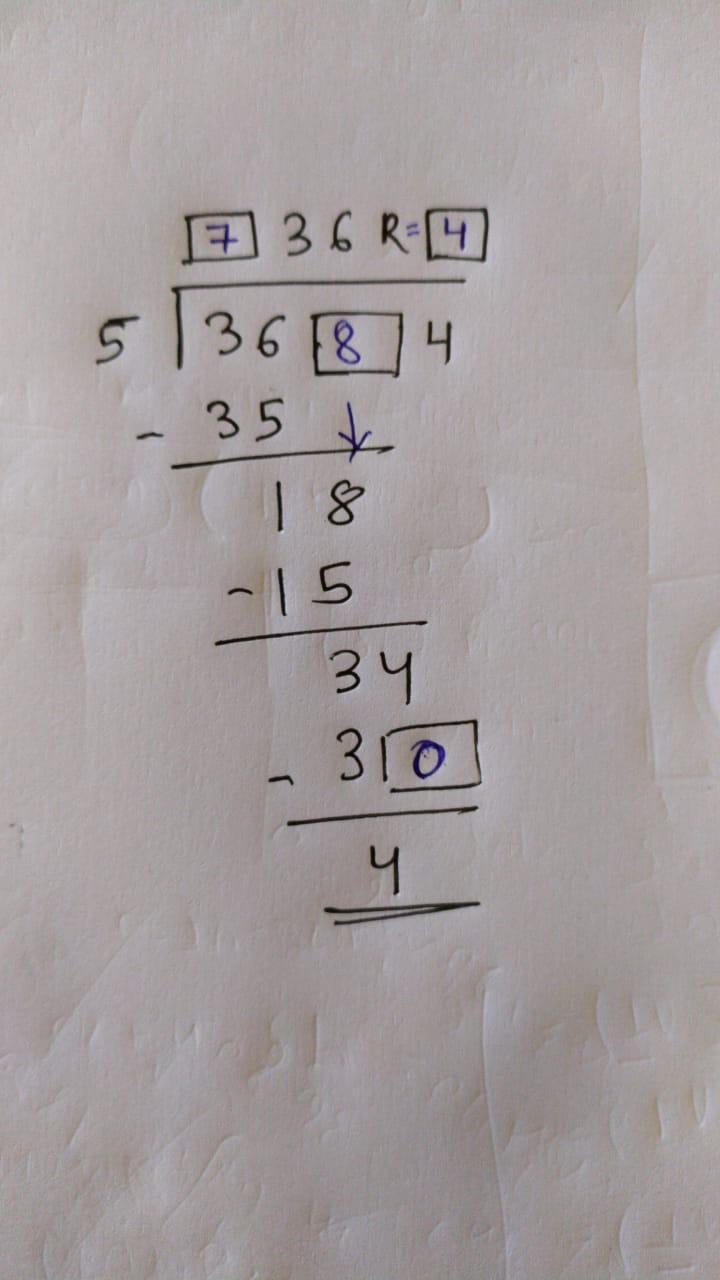 7 3 6 R= 4
5 3 6 8 4
- 3 5 ↓
1 8
- 1 5
3 4
- 3 0
4